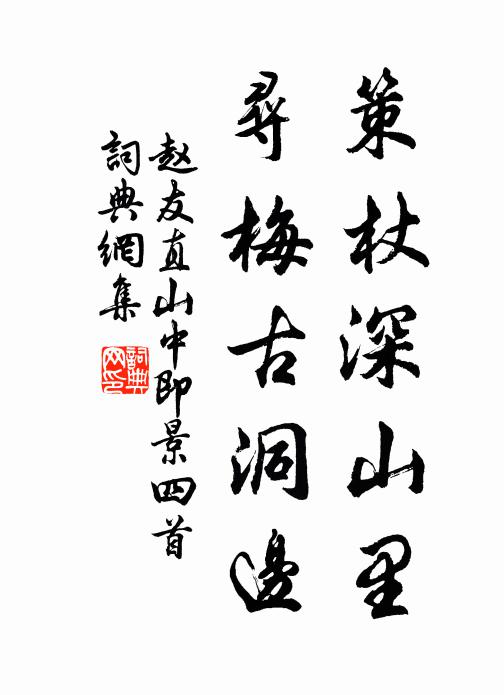 策杖深山里
尋梅古洞邊
赵友直山中即景四首
詞典網集
詞典网印